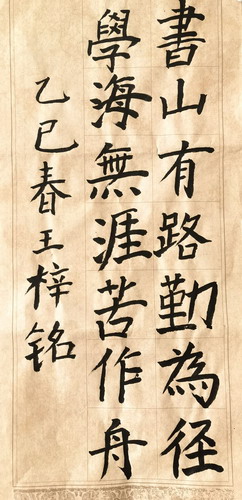 書山有路勤為径
學海無涯苦作舟
乙巳春王梓铭